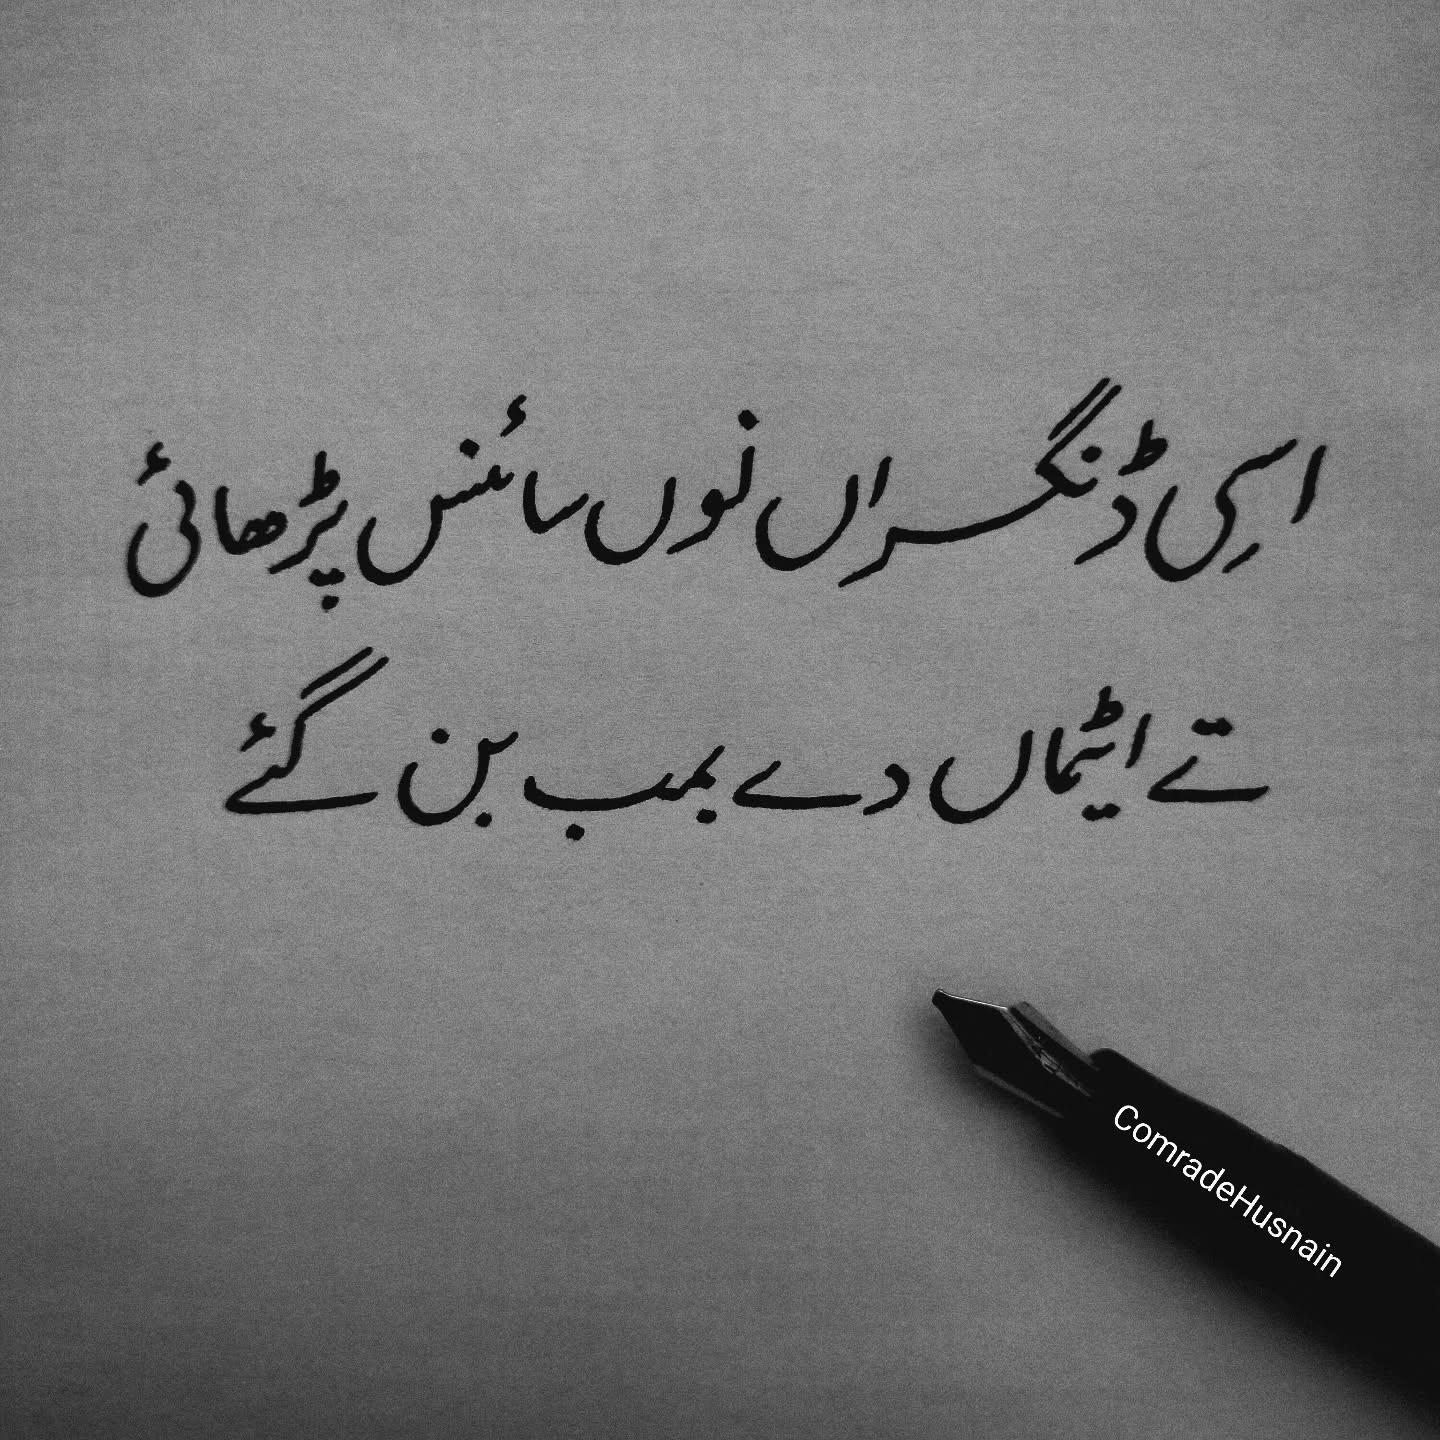 اسِی ڈنگراں نوں سائنس پڑھائی
تے ایٹماں دے بمب بن گئے
ComradeHusnain